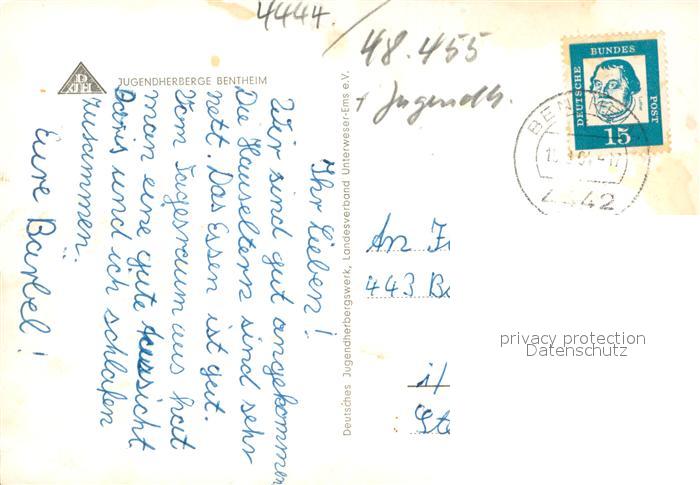 4444.
48.455
+ Jugendh.
JUGENDHERBERGE BENTHEIM
DJH
Ihr Lieben!
Wir sind gut angekommen
Die Hauseltern sind sehr
nett. Das Essen ist gut.
Vom Tagesraum aus hat
man eine gute Aussicht
Doris und ich schlafen
zusammen.
Eure Bärbel!
Deutsches Jugendherbergswerk, Landesverband Unterweser-Ems e.V.
DEUTSCHE BUNDES POST
15
BEN
4442
An
443
i/
privacy protection
Datenschutz